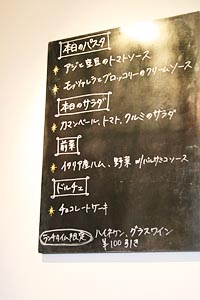 本日のパスタ
アジと空豆のトマトソース
モッツァレラとブロッコリーのクリームソース
本日のサラダ
カマンベール、トマト、クルミのサラダ
前菜
イタリア産ハム、野菜 バルサミコソース
ドルチェ
チョコレートケーキ
ランチタイム限定 ハイネケン、グラスワイン
¥100引き